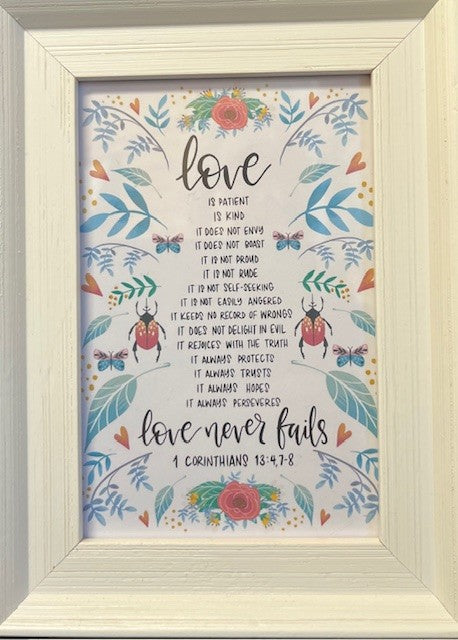 love
IS PATIENT
IS KIND
IT DOES NOT ENVY
IT DOES NOT BOAST
IT IS NOT PROUD
IT IS NOT RUDE
IT IS NOT SELF-SEEKING
IT IS NOT EASILY ANGERED
IT KEEPS NO RECORD OF WRONGS
IT DOES NOT DELIGHT IN EVIL
IT REJOICES WITH THE TRUTH
IT ALWAYS PROTECTS
IT ALWAYS TRUSTS
IT ALWAYS HOPES
IT ALWAYS PERSEVERES
love never fails
1 CORINTHIANS 13:4,7-8